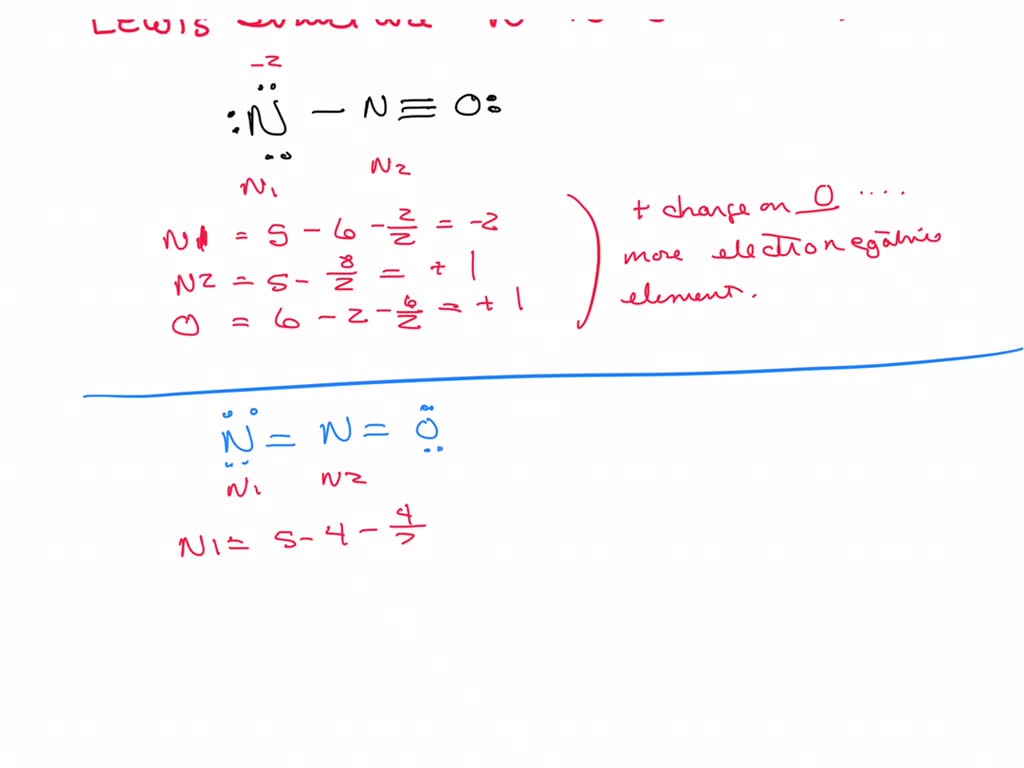 LEWIS
-2
:N̈ – N ≡ O:
N1
N2
N1 = 5 - 6 - 2/2 = -2
N2 = 5 - 8/2 = +1
O = 6 - 2 - 6/2 = +1
+ charge on O ....
more electronegative
element.
N = N = O
N1
N2
N1 = 5 - 4 - 4/2